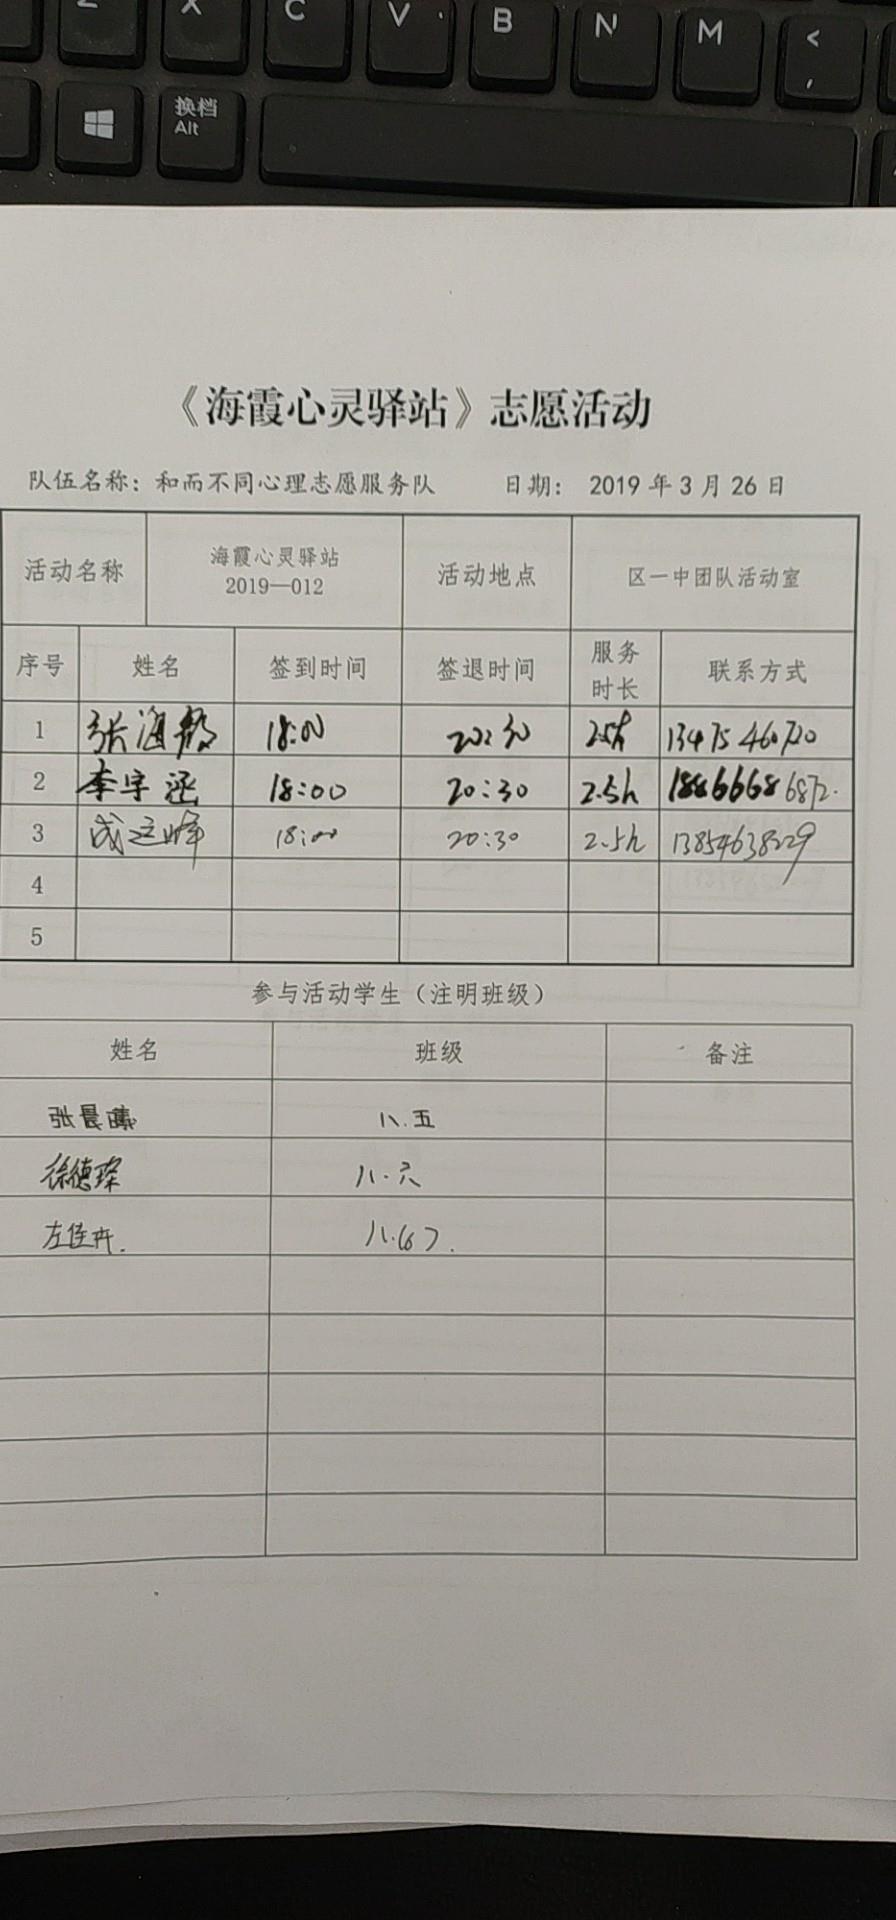 Z X C V B N M < ,
换档
Alt
《海霞心灵驿站》志愿活动
队伍名称：和而不同心理志愿服务队 日期： 2019 年 3 月 26 日
活动名称 海霞心灵驿站 2019—012 活动地点 区一中团队活动室
序号 姓名 签到时间 签退时间 服务时长 联系方式
1 张海 18:00 20:30 2.5h 13475460720
2 李宇涵 18:00 20:30 2.5h 6872.
3 成 峰 18:00 20:30 2.5h 13854638229
4
5
参与活动学生（注明班级）
姓名 班级 备注
张晨曦 八.五
徐德璨 八.六
左佳卉. 八.(6).